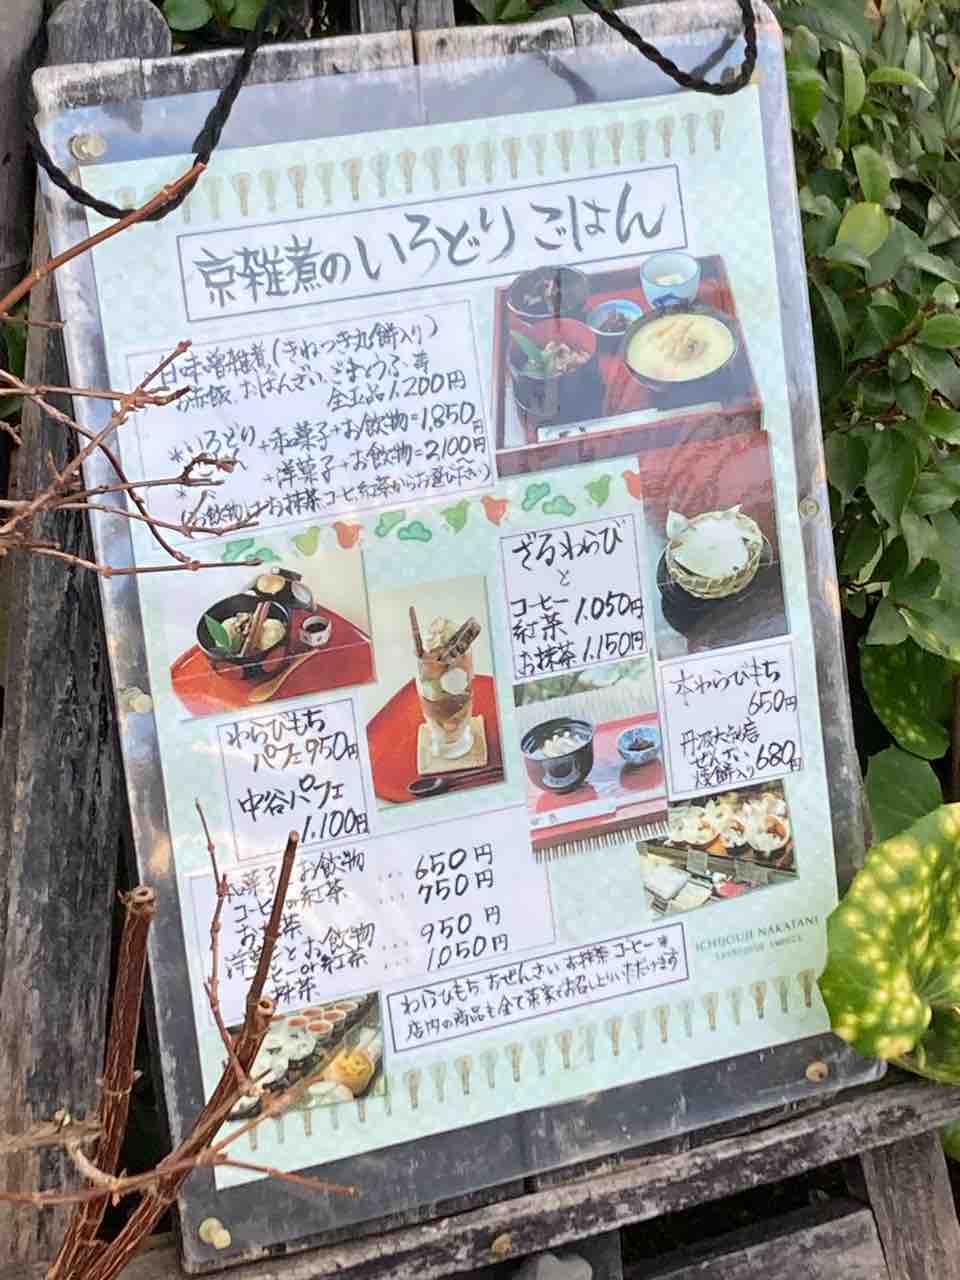 京雑煮のいろどりごはん
白味噌雑煮(きねつき丸餅入り)
お赤飯、おばんざい、ごまとうふ、等
全五品 1.200円
*いろどり+和菓子+お飲物=1,850円
* +洋菓子+お飲物=2100円
(お飲物はお抹茶コーヒ紅茶からお選び下さい)
ざるわらび
と
コーヒー
紅茶 1.050円
お抹茶 1.150円
本わらびもち
650円
丹波大納言
ぜんざい
焼餅入り 680円
わらびもち
パフェ950円
中谷パフェ
1.100円
和菓子とお飲物
コーヒーor紅茶 ... 650円
お抹茶 ... 750円
洋菓子とお飲物
コーヒーor紅茶 ... 950円
お抹茶 ... 1,050円
ICHIJOUJI NAKATANI
わらびもち おぜんざい お抹茶 コーヒー等
店内の商品も全て茶家でお召し上がりいただけます